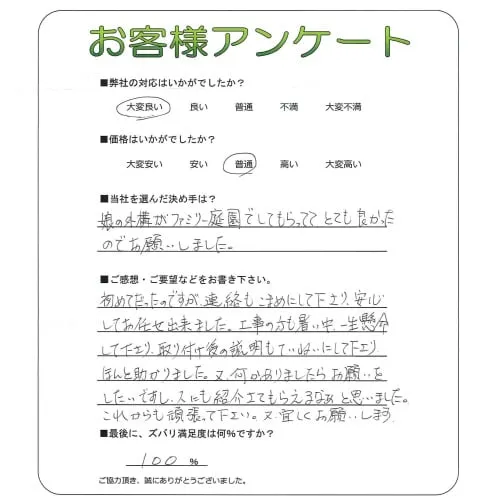 お客様アンケート
■弊社の対応はいかがでしたか?
大変良い 良い 普通 不満 大変不満
■価格はいかがでしたか?
大変安い 安い 普通 高い 大変高い
■当社を選んだ決め手は?
娘の外構がファミリー庭園でしてもらってて とても良かった
のでお願いしました。
■ご感想・ご要望などをお書き下さい。
初めてだったのですが、連絡もこまめにして下さり、安心
してお任せ出来ました。工事の方も暑い中、一生懸命
して下さり、取り付け後の説明もていねいにして下さり、
ほんと助かりました。又、何かありましたらお願いを
したいですし、人にも紹介立てもらえるなぁと思いました。
これからも頑張って下さい。又、宜しくお願いします。
■最後に、ズバリ満足度は何%ですか?
100 %
ご協力頂き、誠にありがとうございました。